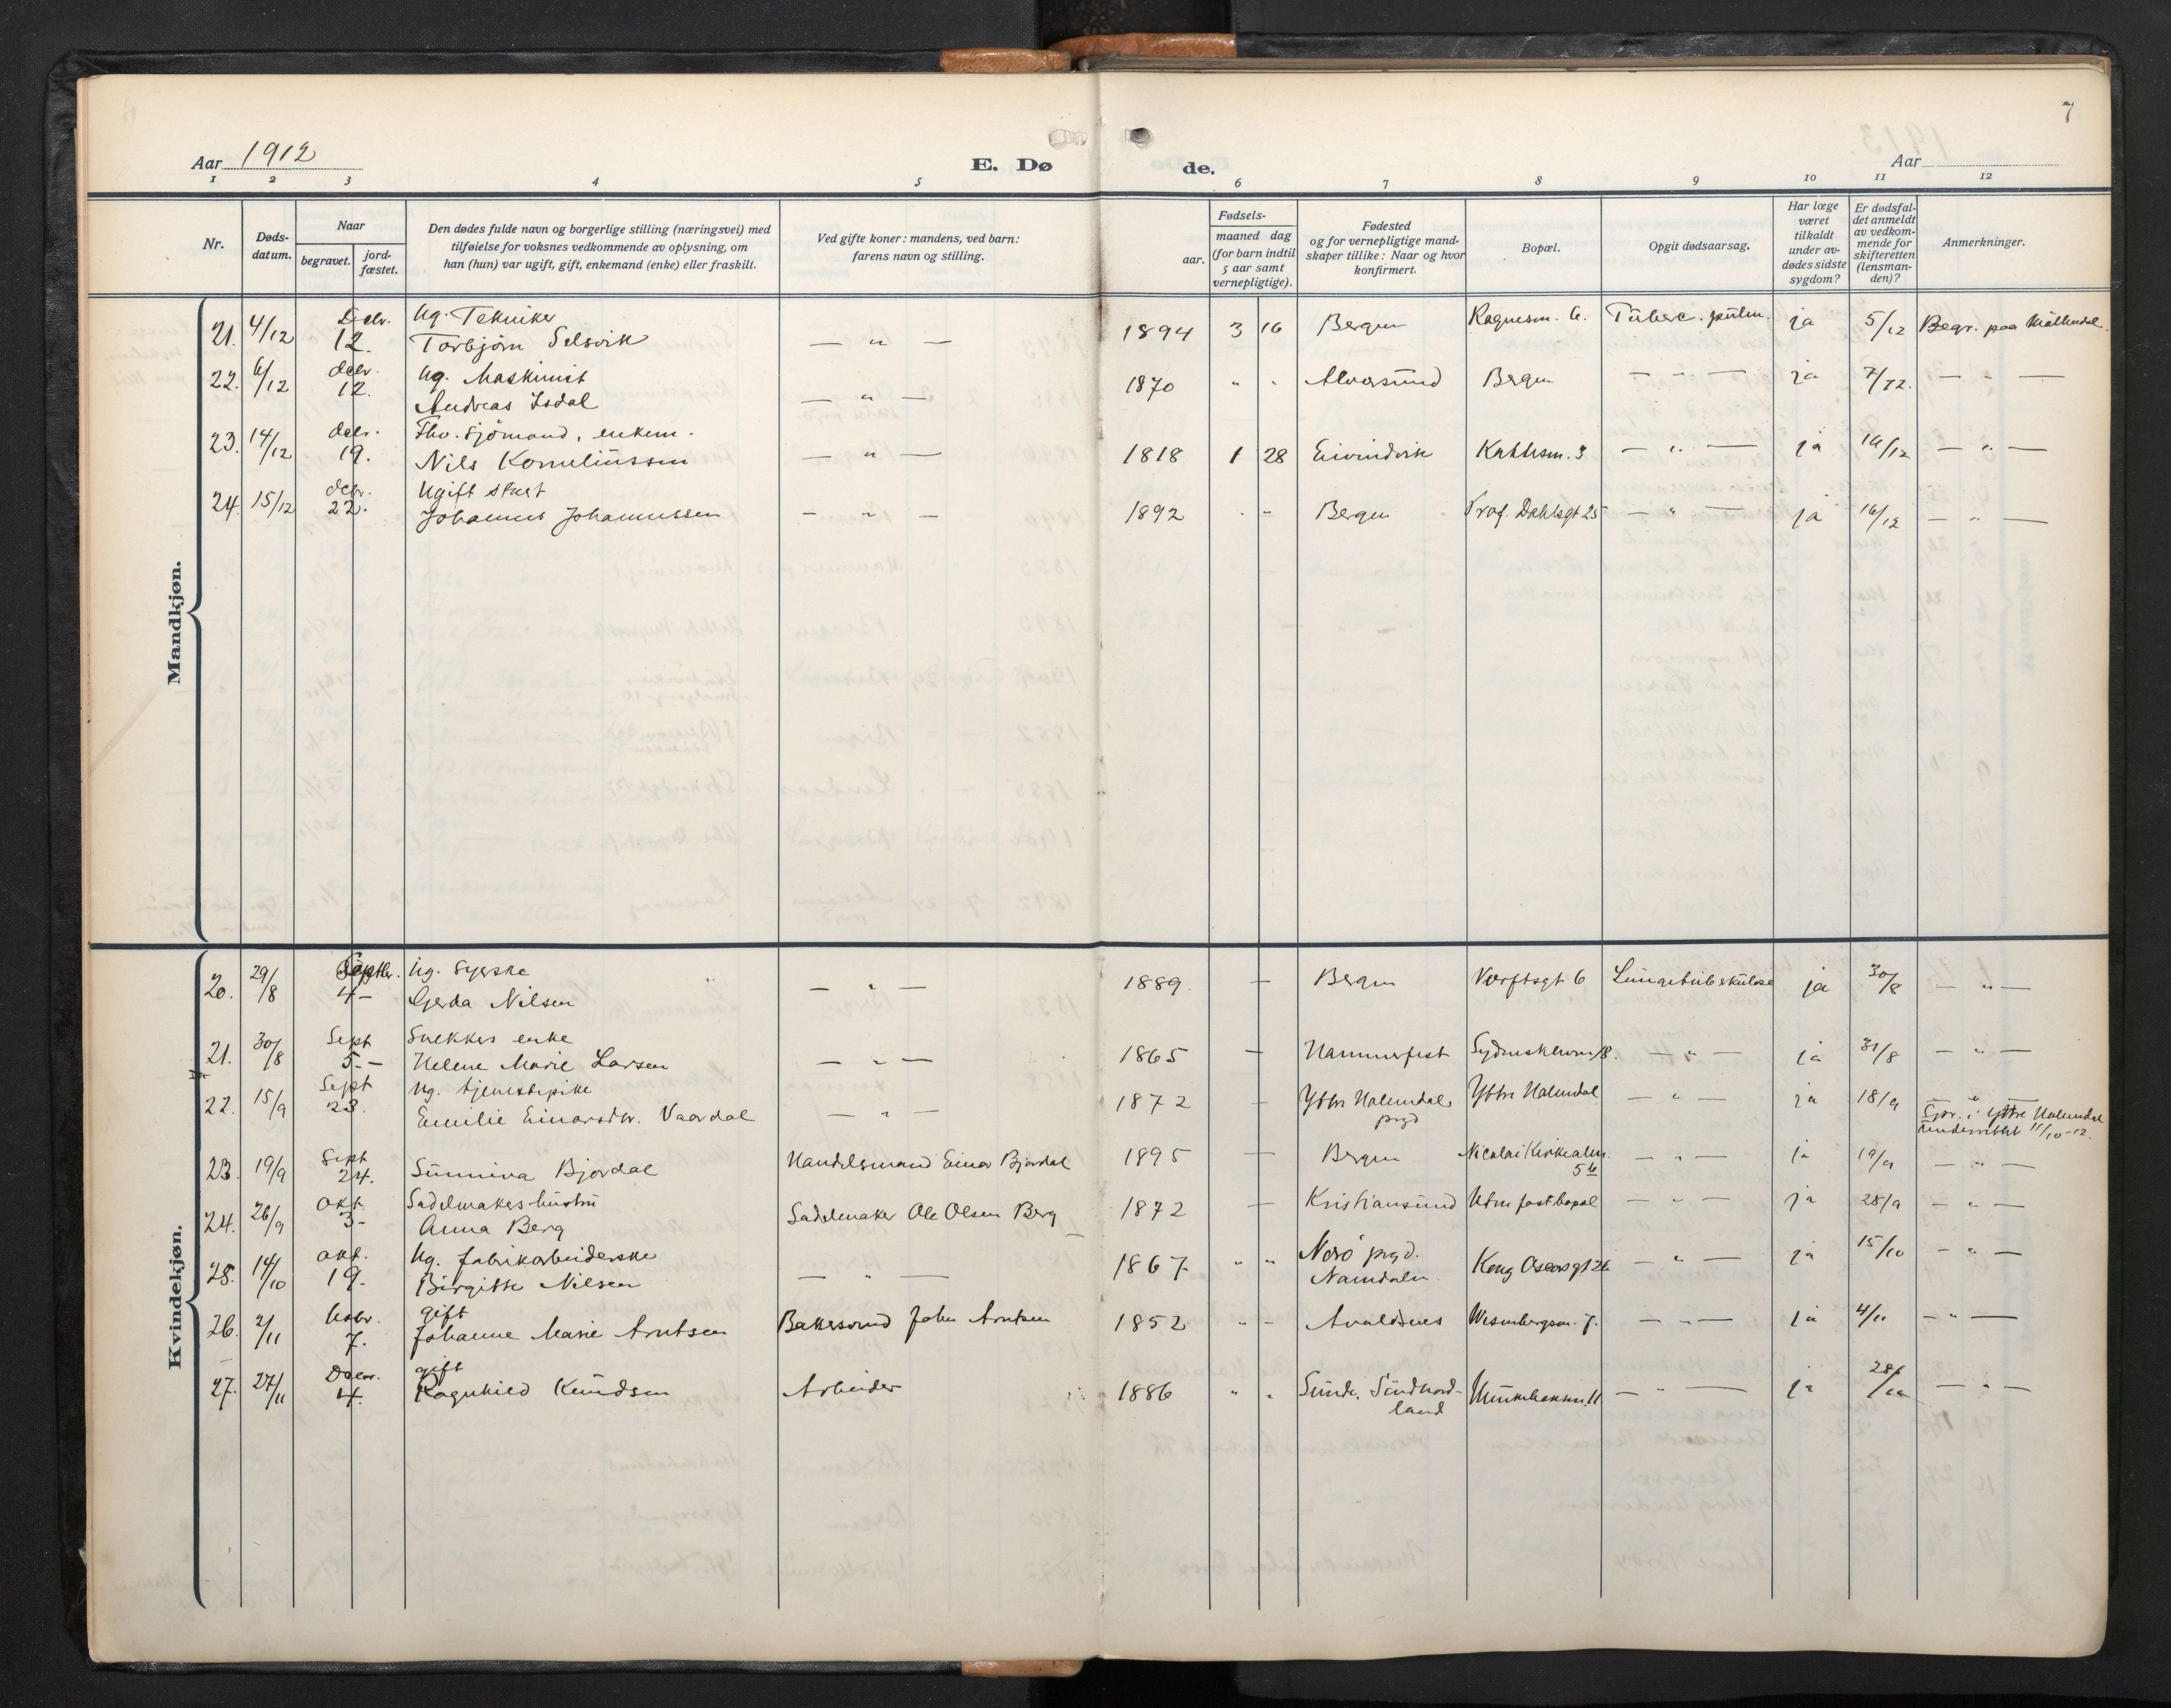 7
Aar 1912
E. Dø
de.
Aar
1 2 3 4 5 6 7 8 9 10 11 12
Nr.
Døds-
datum.
Naar
begravet.
jord-
fæstet.
Den dødes fulde navn og borgerlige stilling (næringsvei) med
tilføielse for voksnes vedkommende av oplysning, om
han (hun) var ugift, gift, enkemand (enke) eller fraskilt.
Ved gifte koner: mandens, ved barn:
farens navn og stilling.
Fødsels-
aar.
maaned dag
(for barn indtil
5 aar samt
vernepligtige).
Fødested
og for vernepligtige mand-
skaper tillike: Naar og hvor
konfirmert.
Bopæl.
Opgit dødsaarsag.
Har læge
været
tilkaldt
under av-
dødes sidste
sygdom?
Er dødsfal-
det anmeldt
av vedkom-
mende for
skifteretten
(lensman-
den)?
Anmerkninger.
Mandkjøn.
21. 4/12 Debr. 12. Ug. Tekniker
Torbjørn Selsvik — " — 1894 3 16 Bergen Ragnesm. 6. Tuberc. pulm. ja 5/12 Begr. paa Møllendal.
22. 6/12 debr. 12. Ug. Maskinist
Andreas Isdal — " — 1870 " " Alversund Bergen — " — ja 7/12. — " —
23. 14/12 debr. 19. Fhv. sjömand, enkem.
Nils Korneliussen — " — 1818 1 28 Eivindvik 3 — " — ja 14/12 — " —
24. 15/12 debr. 22. Ugift
Johannes Johannessen — " — 1892 " " Bergen Prof. Dahlsgt 25 — " — ja 16/12 — " —
Kvindekjøn.
20. 29/8 Septbr. 4- Ug. syerske
Gerda Nilsen — " — 1889 — Bergen Verftsgt 6 Lungetuberkulose ja 30/8 — " —
21. 30/8 Sept 5.- Snekkers enke
Helene Marie Larsen — " — 1865 — Hammerfest — " — ja 31/8 — " —
22. 15/9 Sept 23. Ug. tjenestepike
Emilie Einarsdtr. Vaardal — " — 1872 — Yttre Holmedals
prgd Yttre Holmedal — " — ja 18/9 Spr. i Yttre Holmedal
underrettet 11/10-12.
23. 19/9 Sept 24. Sunniva Bjordal Handelsmand Einar Bjordal 1895 — Bergen Nicolai Kirkealm.
5 b — " — ja 19/9 — " —
24. 26/9 Okt. 3- Sadelmakers hustru
Anna Berg Sadelmaker Ole Olsen Berg 1872 — Kristiansund Uten fast bopæl — " — ja 28/9 — " —
28. 14/10 Okt. 19. Ug. fabrikarbeiderske
Birgitte Nilsen — " — 1867 " " Nærö prgd.
Namdalen Kong Oscarsgt 26 — " — ja 15/10 — " —
26. 2/11 Nobr. 7. gift
Johanne Marie Arntsen Bakersvend John Arntsen 1852 " " Avaldsnes Wesenbergsm. 7. — " — ja 4/11 — " —
27. 27/11 Decbr. 4. gift
Ragnhild Knudsen Arbeider 1886 " " Sunde, Söndhord-
land 11 — " — ja 28/11 — " —